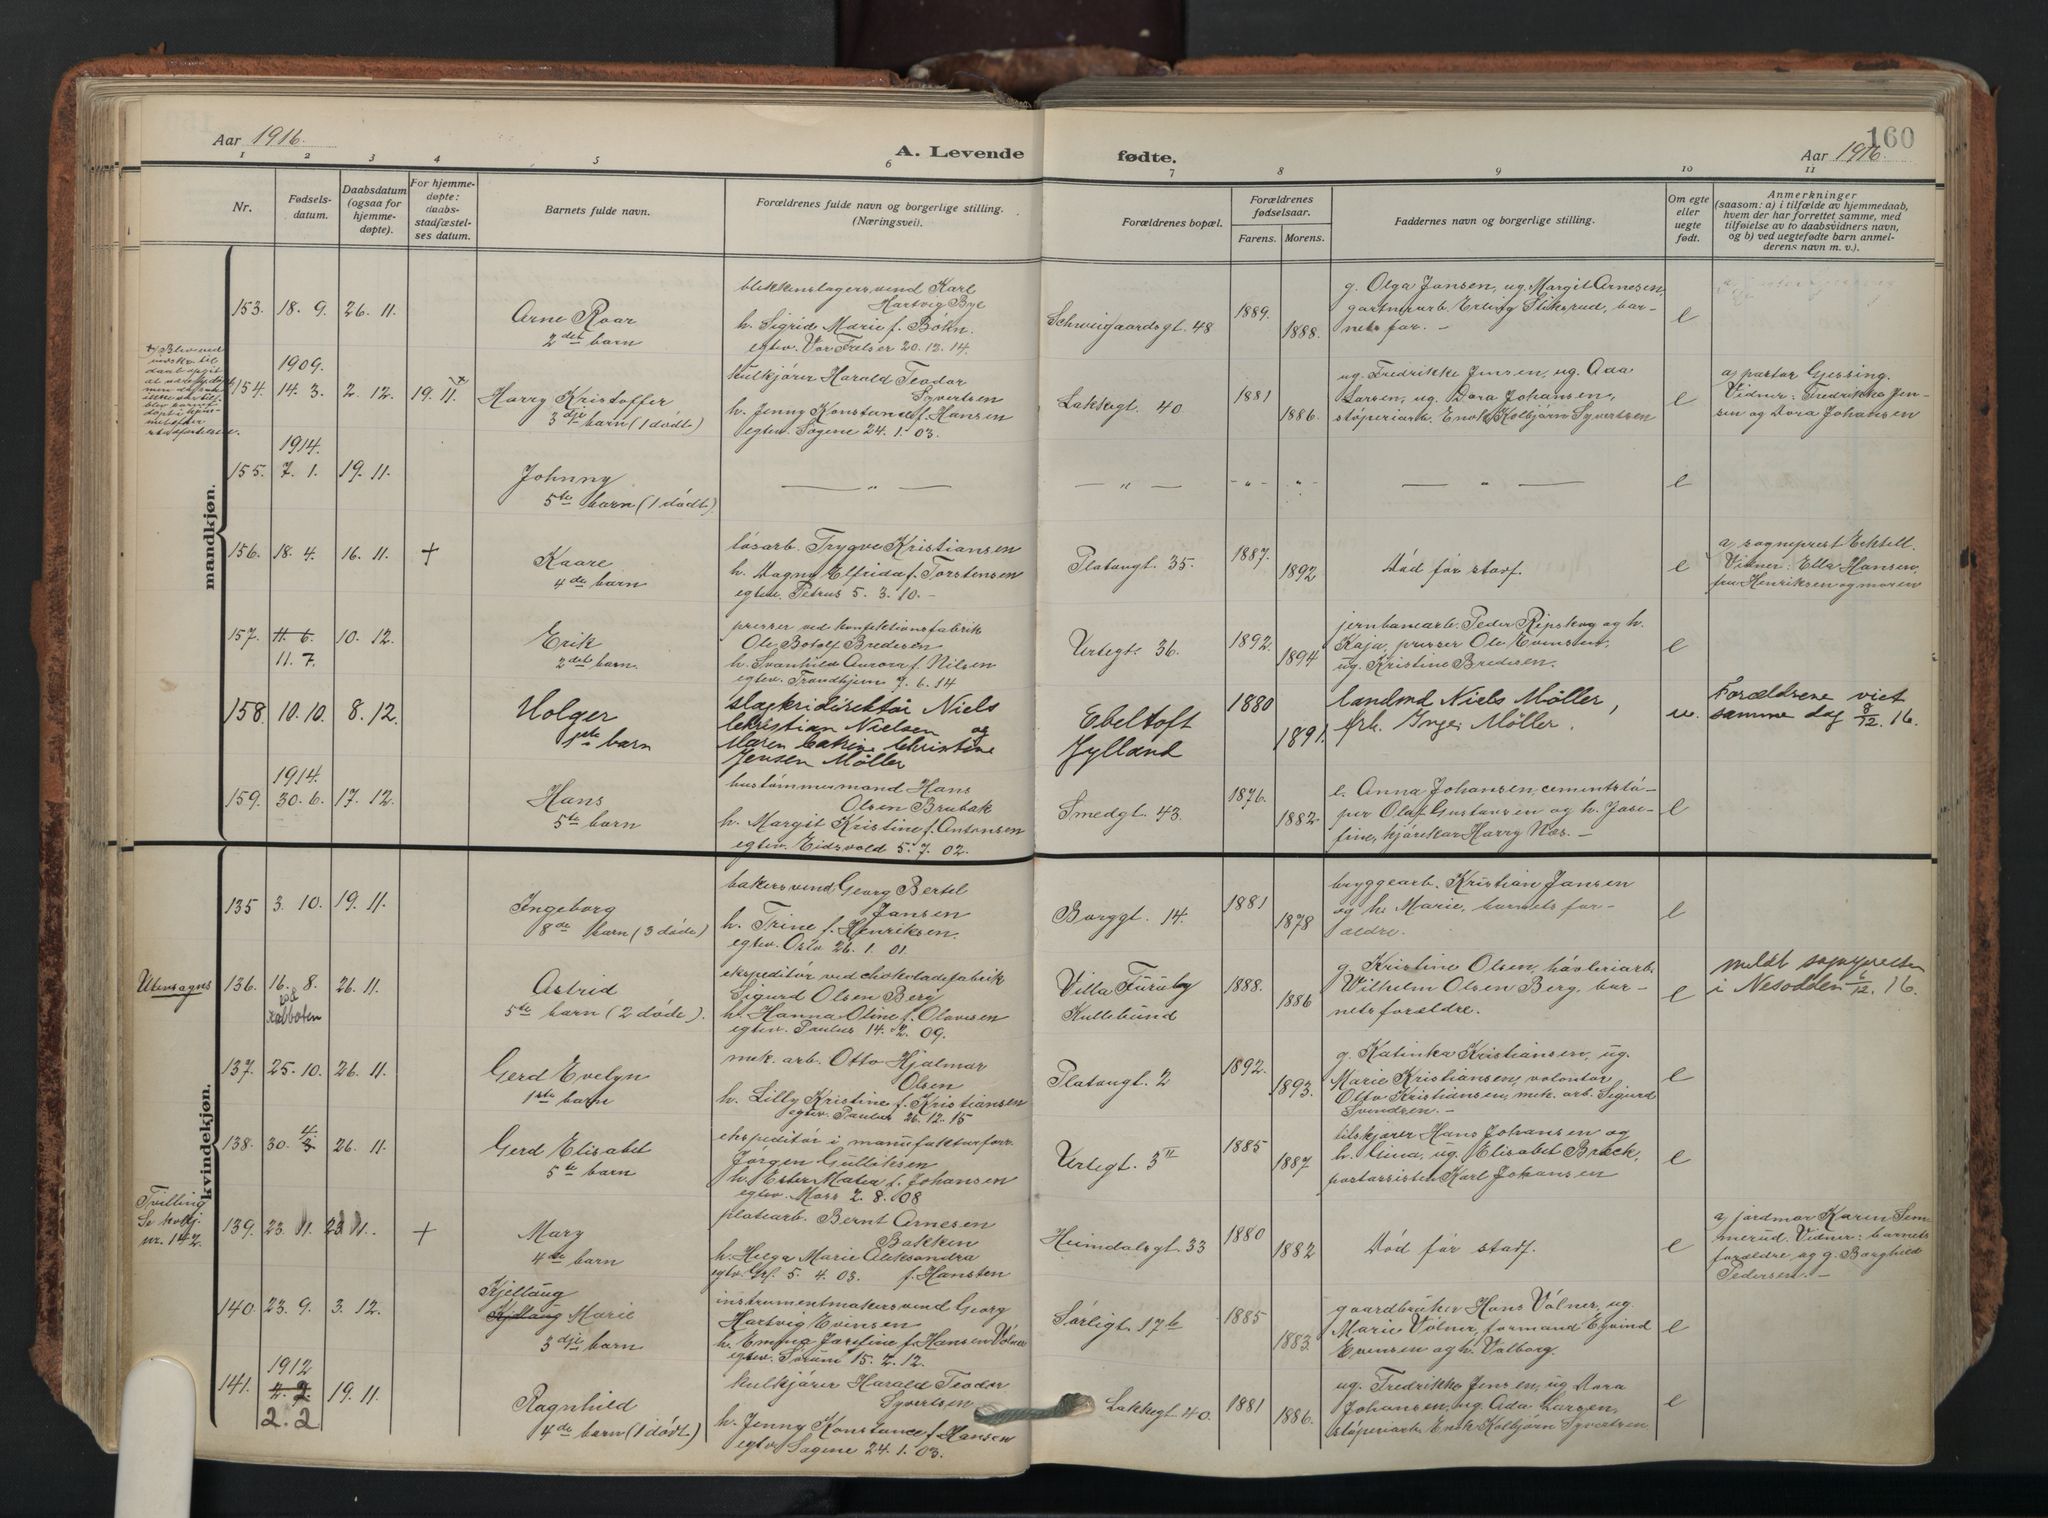 160
Aar 1916.
A. Levende fødte.
Aar 1916.
1 2 3 4 5 6 7 8 9 10 11
Nr.
Fødsels-
datum.
Daabsdatum
(ogsaa for
hjemme-
døpte).
For hjemme-
døpte:
daabs-
stadfæstel-
ses datum.
Barnets fulde navn.
Forældrenes fulde navn og borgerlige stilling.
(Næringsvei).
Forældrenes bopæl.
Forældrenes
fødselsaar.
Farens. Morens.
Faddernes navn og borgerlige stilling.
Om egte
eller
uegte
født.
Anmerkninger
(saasom: a) i tilfælde av hjemmedaab,
hvem der har forrettet samme, med
tilføielse av to daabsvidners navn,
og b) ved uegtefødte barn anmel-
derens navn m. v.).
mandkjøn.
153. 18. 9. 26. 11.
Arne Roar
2det barn
blikkenslagersvend Karl
Hartvig Bye
h. Sigrid Marie f. Bökn.
egtev. Vor Frelser 20. 12. 14.
Schweigaardsgt. 48
1889.
1888.
g. Olga Jansen, ug. Margit Arnesen,
gartnerarb. Erling Sliksrud, bar-
nets far. —
e
1909.
154. 14. 3. 2. 12. 19. 11
Harry Kristoffer
3dje barn (1 dödt)
kulkjörer Harald Teodor
Syvertsen
h. Jenny Konstance f. Hansen
egtev. Sagene 24. 1. 03.
Lakkegt. 40.
1881
1886.
ug. Fredrikke Jensen, ug. Ada
Larsen, ug. Dora Johansen,
stöperiarb. Enok Kolbjörn Syvertsen
e
a) pastor Gjessing.
Vidner: Fredrikke Jen-
sen og Dora Johansen
1914.
155. 7. 1. 19. 11.
Johnny
5te barn (1 dödt).
— „ —
— „ —
- „ - - „ -
— „ —
e
156. 18. 4. 16. 11. +
Kaare
4de barn
lösarb. Trygve Kristiansen
h. Dagny Elfrida f. Torstensen
egtev. Petrus 5. 3. 10. -
Platougt. 35.
1887.
1892
Död för stadf.
e
a) sogneprest Ecktell.
Vidner: Ella Hansen,
fru Henriksen og moren
157. 11. 6. 10. 12.
11. 7.
Erik
2det barn.
presser ved konfektionsfabrik
Ole Botolf Bredesen
h. Svanhild Aurora f. Nilsen
egtev. Trondhjem 7. 6. 14
Urtegt. 36.
1892.
1894
jernbanearb. Peder Ripskog og h.
Kaja, presser Ole Evensen,
ug. Kristine Bredesen.
e
158. 10. 10. 8. 12.
Holger
1ste barn
Niels
Christian Nielsen og
Maren Catrine Christine
Jensen Møller
Ebeltoft
Jylland
1880
1891.
landmd Niels Møller,
frk. Inger Møller.
u.
Forældrene viet
samme dag 8/12. 16.
1914.
159. 30. 6. 17. 12.
Hans
5te barn
hustömmermand Hans
Olsen Brubak
h. Margit Kristine f. Antonsen
egtev. Eidsvold 5. 7. 02.
Smedgt. 43.
1876.
1882
e. Anna Johansen, cementstö-
per Olaf Gustavsen og h. Jose-
fine, kjörekar Harry Næs. —
e
kvindekjøn.
135 3. 10. 19. 11.
Ingeborg
8de barn (3 döde)
bakersvend Georg Bertel
Jansen
h. Trine f. Henriksen.
egtev. Oslo 26. 1. 01.
Borggt. 14.
1881
1878
bryggearb. Kristian Jansen
og h. Marie, barnets for-
ældre.
e
Utensogns
136. 16. 8. 26. 11.
Astrid
5te barn (2 döde).
ekspeditör ved chokoladefabrik
Sigurd Olsen Berg
h. Hanna Oline f. Olavesen
egtev. Paulus 14. 2. 09.
Villa Furuby
Kullebund
1888.
1886
g. Kristine Olsen, hövleriarb.
Wilhelm Olsen Berg, bar-
nets forældre.
e
meldt sognepresten
i Nesodden 6/12. 16.
137. 25. 10. 26. 11.
Gerd Evelyn
1ste barn
mek. arb. Otto Hjalmar
Olsen
h. Lilly Kristine f. Kristiansen
egtev. Paulus 26. 12. 15
Platougt. 2
1892.
1893.
g. Katinka Kristiansen, ug.
Marie Kristiansen, volontör
Otto Kristiansen, mek. arb. Sigurd
Svendsen. —
e
138. 30. 4/3 26. 11.
Gerd Elisabet
5te barn
ekspeditör i manufakturforr.
Jörgen Gullöksen
h. Ester Matea f. Johansen
egtev. Moss 2. 8. 08
Urtegt. 3 II
1885
1887
tilskjærer Hans Johansen og
h. Gina, ug. Elisabet Brock,
postassistent Karl Johansen
e
Tvilling
Se kvkj.
nr. 142.
139. 23. 11. 23. 11. +
Mary
4de barn
platearb. Bernt Arnesen
Bakken
h. Helga Marie Aleksandra
egtev. Grl. 5. 4. 03. f. Hansten
Heimdalsgt. 33
1880
1882
Död för stadf.
e
a) jordmor Karen Sem-
merud. Vidner: barnets
forældre og g. Borghild
Pedersen. —
140. 23. 9. 3. 12.
Kjellaug
Kjellaug Marie
3dje barn
instrumentmakersvend Georg
Hartvig Evensen
h. Emma Josefine f. Hansen Völner
egtev. Sörum 15. 2. 12.
Sörligt. 17b
1885
1883.
gaardbruker Hans Völner, ug.
Marie Völner, formand Eyvind
Evensen og h. Valborg.
e
1912
141. 2. 2. 19. 11.
2. 2
Ragnhild
4de barn (1 dödt)
kulkjörer Harald Teodor
Syvertsen
h. Jenny Konstance f. Hansen
egtev. Sagene 24. 1. 03.
Lakkegt. 40.
1881
1886.
ug. Fredrikke Jensen, ug Dora
Johansen, ug. Ada Larsen,
stöperiarb. Enok Kolbjörn Syvertsen
e